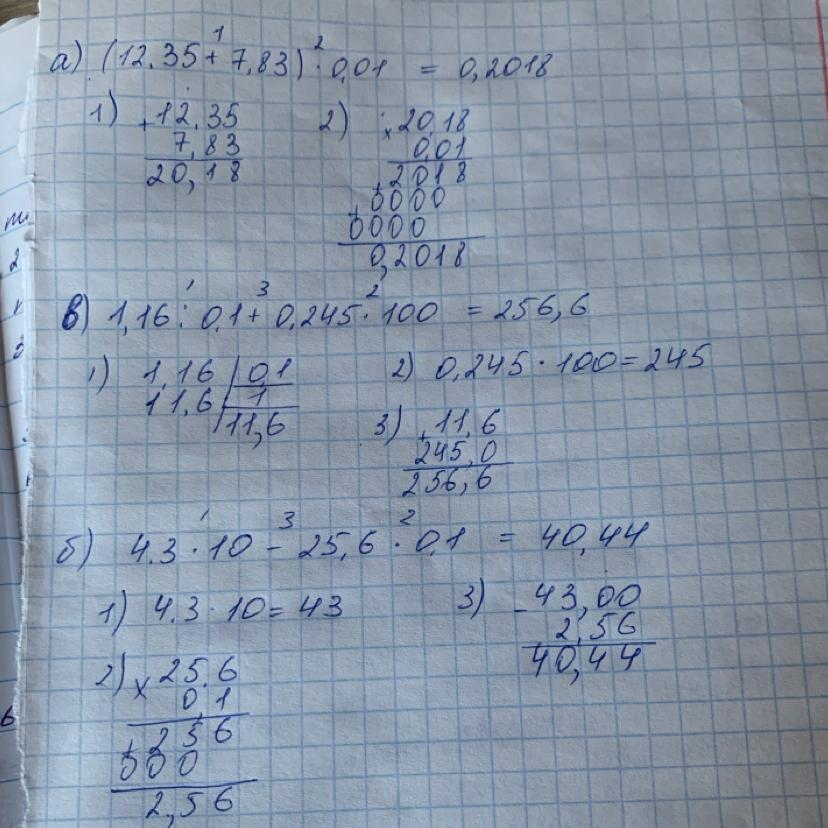 а) (12.35 + 7,83) · 0,01 = 0,2018
1 2
1) +12,35
7,83
20,18
2) ×20,18
0,01
+2018
+0000
0000
0,2018
в) 1,16 : 0,1 + 0,245 · 100 = 256,6
1 3 2
1) 1,16 | 0,1
11,6 | 1
11,6
2) 0,245 · 100 = 245
3) +11,6
245,0
256,6
б) 4.3 · 10 - 25,6 · 0,1 = 40,44
1 3 2
1) 4.3 · 10 = 43
3) -43,00
2,56
40,44
2) ×25.6
0,1
+256
000
2,56